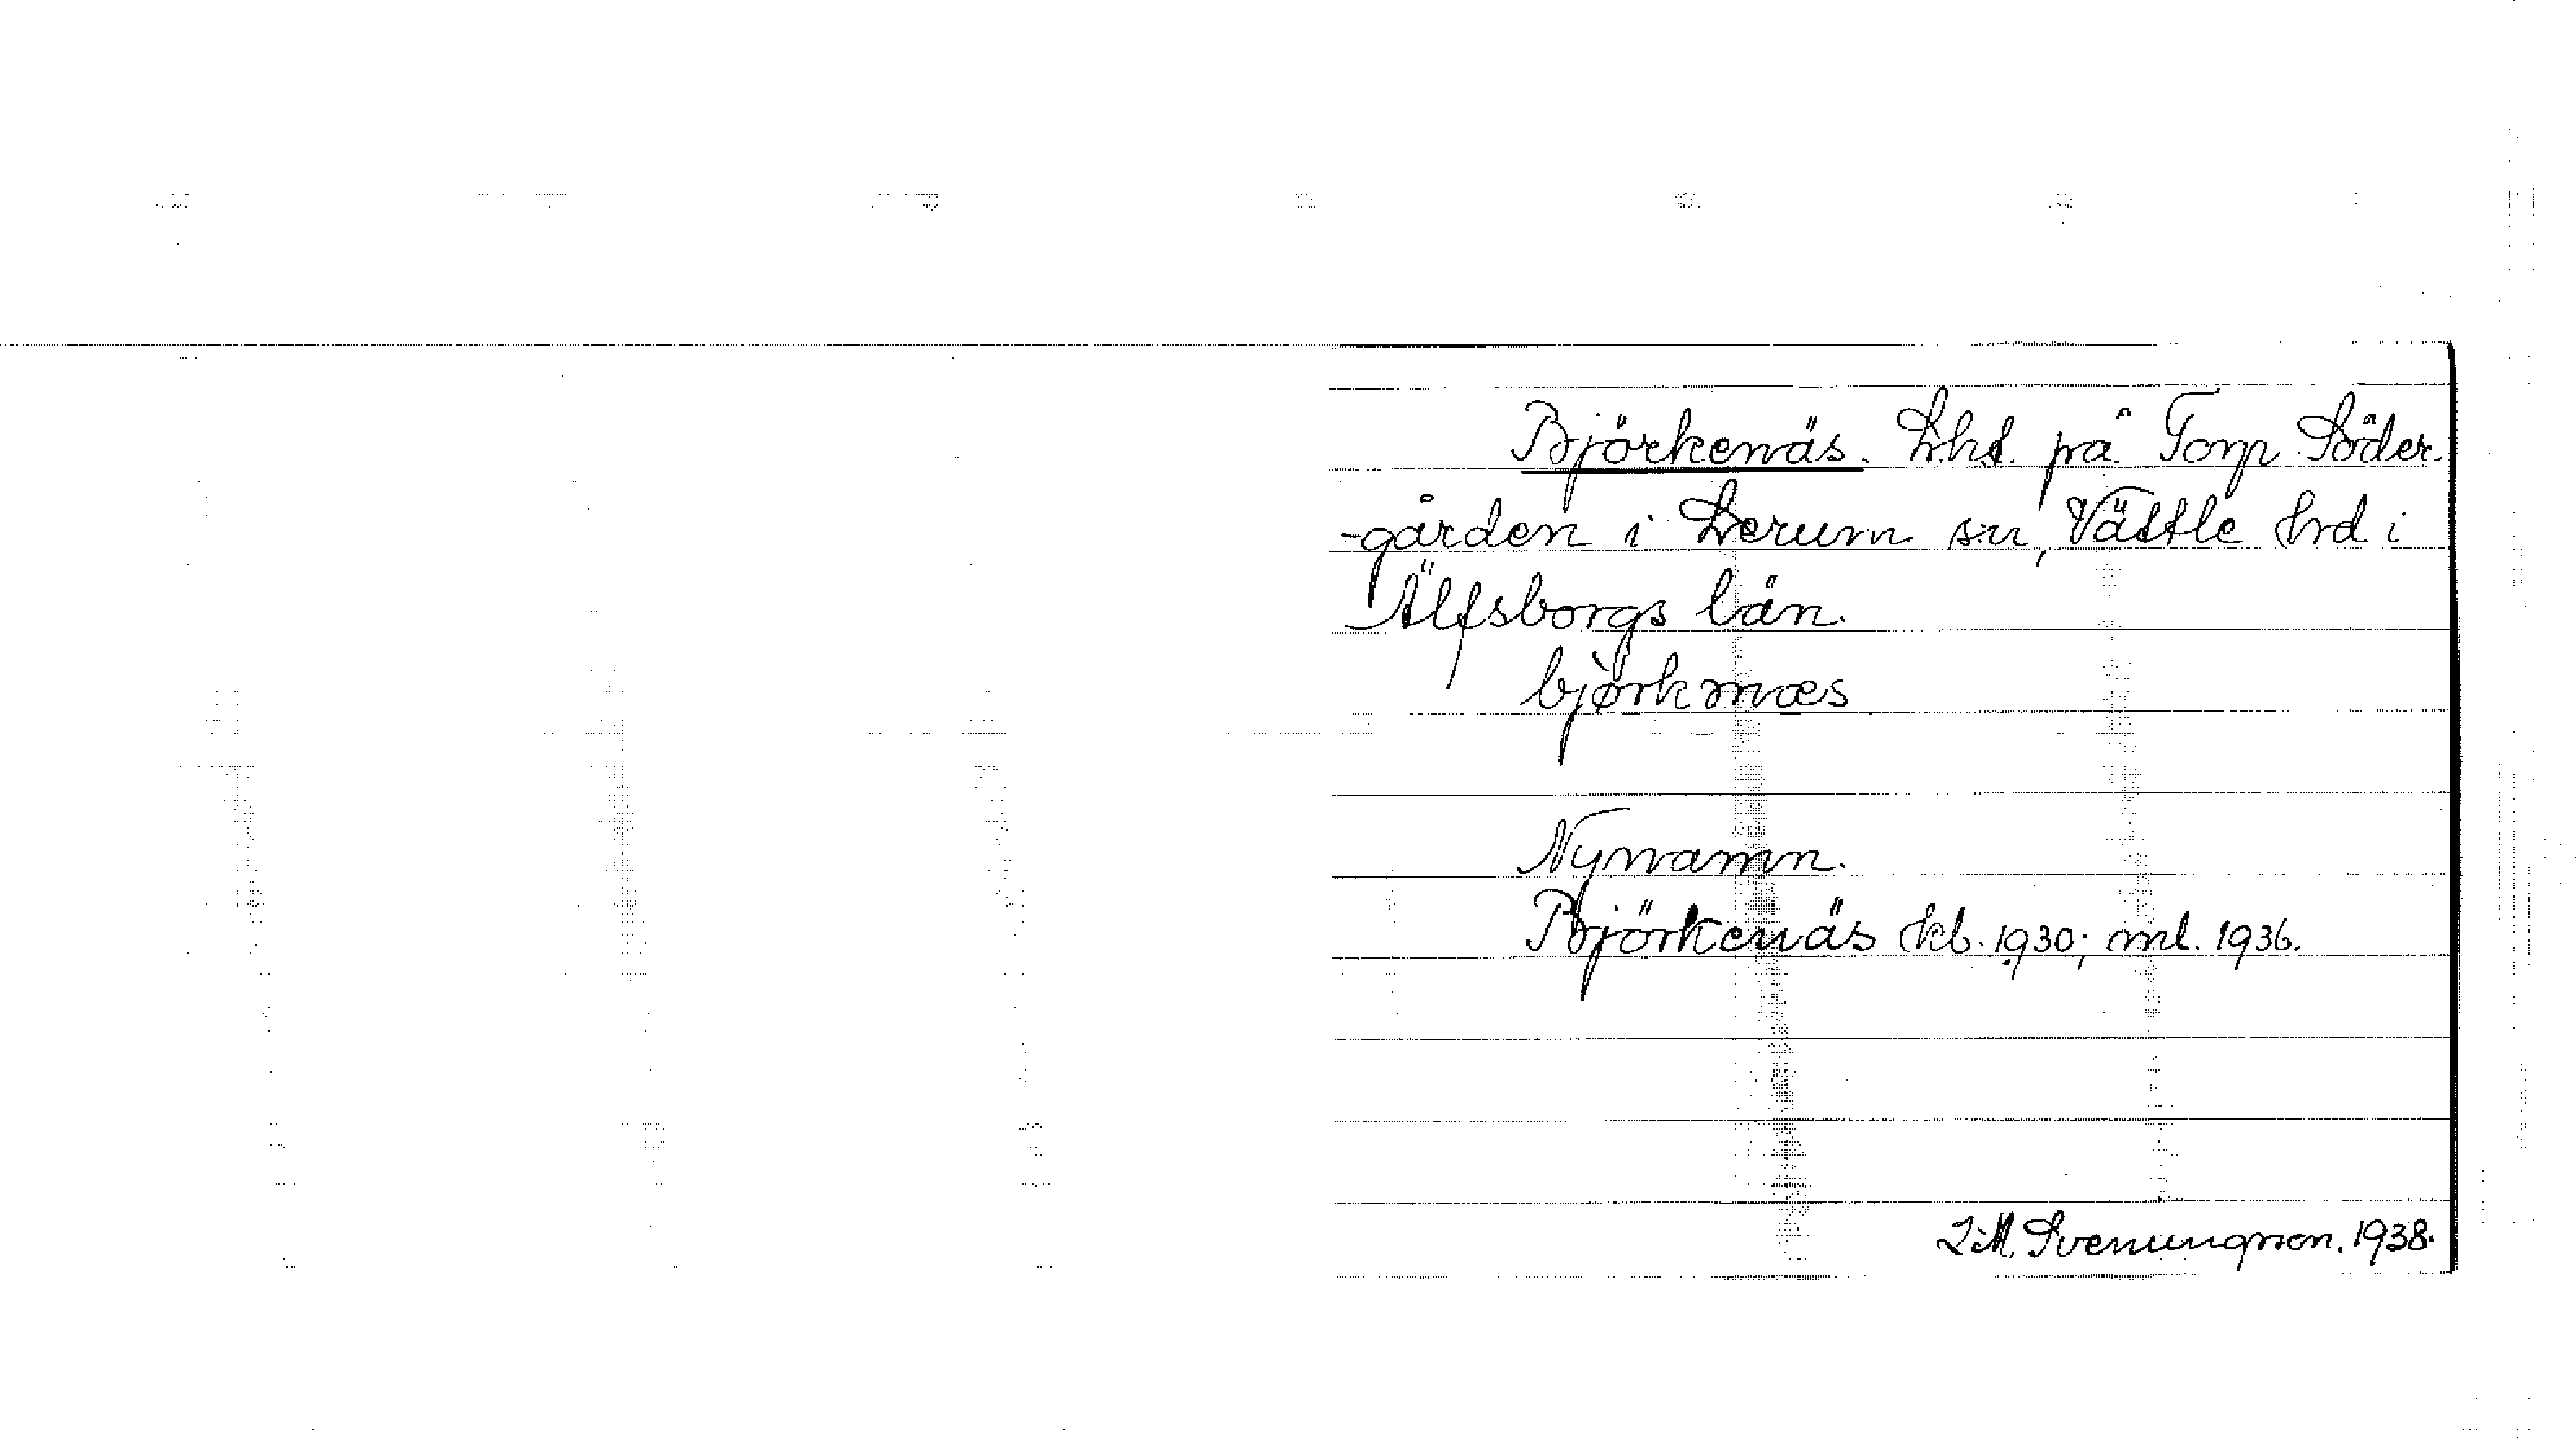 Björkenäs. Lht. på Torp Söder
-gården i Lerum sn, Vättle hrd i
Älfsborgs län.
bjòrknæs
Nynamn.
Björkenäs kb. 1930; ml. 1936.
I.M. Svenungsson. 1938.